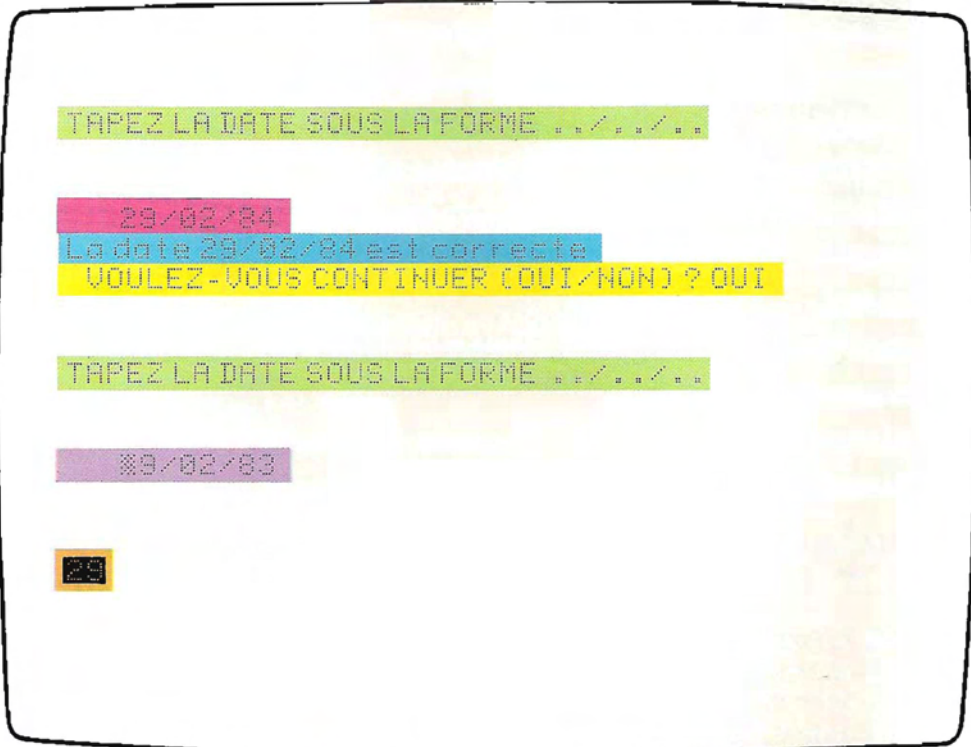 TAPEZ LA DATE SOUS LA FORME ../../..
29/02/84
La date 29/02/84 est correcte
VOULEZ-VOUS CONTINUER (OUI/NON) ? OUI
TAPEZ LA DATE SOUS LA FORME ../../..
※9/02/83
29